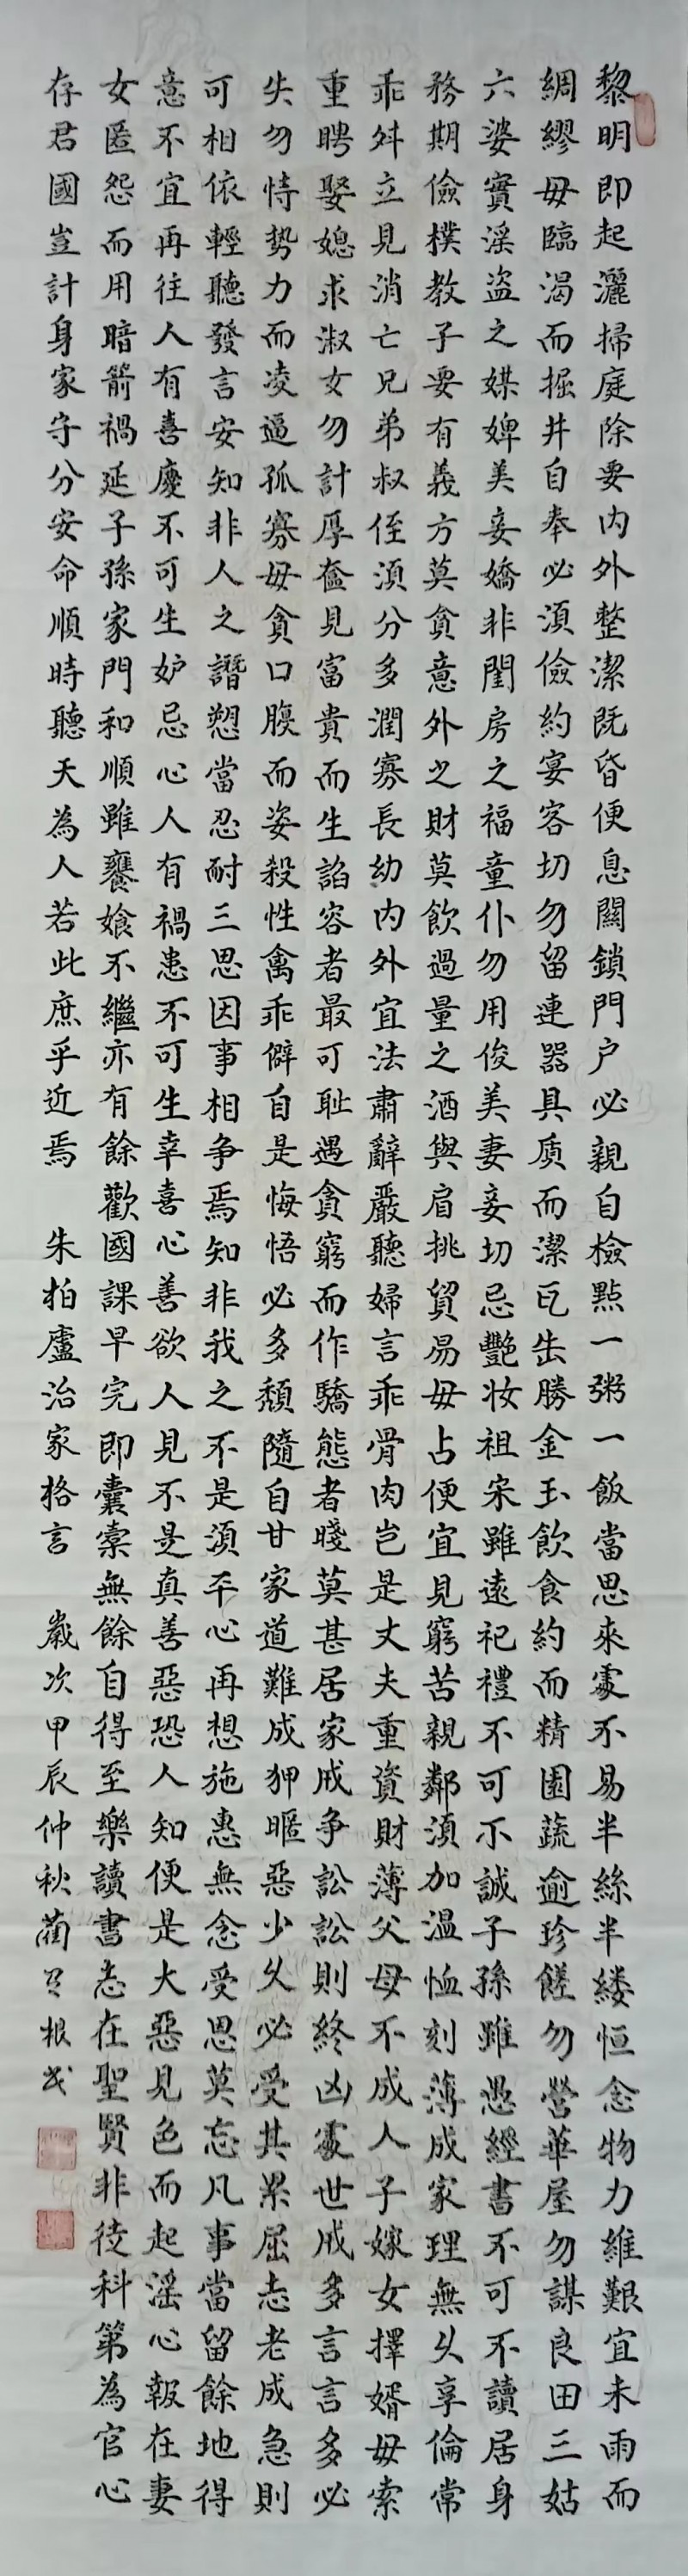 黎明即起灑掃庭除要内外整潔既昏便息關鎖門户必親自檢點一粥一飯當思來處不易半絲半縷恒念物力維艱宜未雨而
綢繆毋臨渴而掘井自奉必須儉約宴客切勿留連器具质而潔瓦缶勝金玉飲食約而精園蔬逾珍饈勿營華屋勿謀良田三姑
六婆實滛盗之媒婢美妾嬌非閨房之福童仆勿用俊美妻妾切忌艷妆祖宗雖遠祀禮不可不誠子孫雖愚經書不可不讀居身
務期儉樸教子要有義方莫貪意外之財莫飲過量之酒與肩挑貿易毋占便宜見窮苦親鄰須加温恤刻薄成家理無久享倫常
乖舛立見消亡兄弟叔侄須分多潤寡長幼内外宜法肅辭嚴聽婦言乖骨肉岂是丈夫重資財薄父母不成人子嫁女擇婿毋索
重聘娶媳求淑女勿計厚奩見富貴而生諂容者最可耻遇貪窮而作驕態者賤莫甚居家戒争訟訟則終凶處世戒多言言多必
失勿恃勢力而凌逼孤寡毋貪口腹而姿殺性禽乖僻自是悔悟必多頹隨自甘家道難成狎暱惡少久必受其累屈志老成急則
可相依輕聽發言安知非人之譖愬當忍耐三思因事相争焉知非我之不是須平心再想施惠無念受恩莫忘凡事當留餘地得
意不宜再往人有喜慶不可生妒忌心人有禍患不可生幸喜心善欲人見不是真善惡恐人知便是大惡見色而起滛心報在妻
女匿怨而用暗箭禍延子孫家門和順雖饔飧不繼亦有餘歡國課早完即囊橐無餘自得至樂讀書志在聖賢非徒科第為官心
存君國豈計身家守分安命順時聽天為人若此庶乎近焉 朱柏廬治家格言 歲次甲辰仲秋藺 根